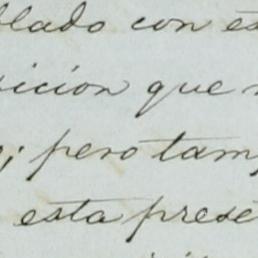 blado con es
icion que
; pero tam
esta prese